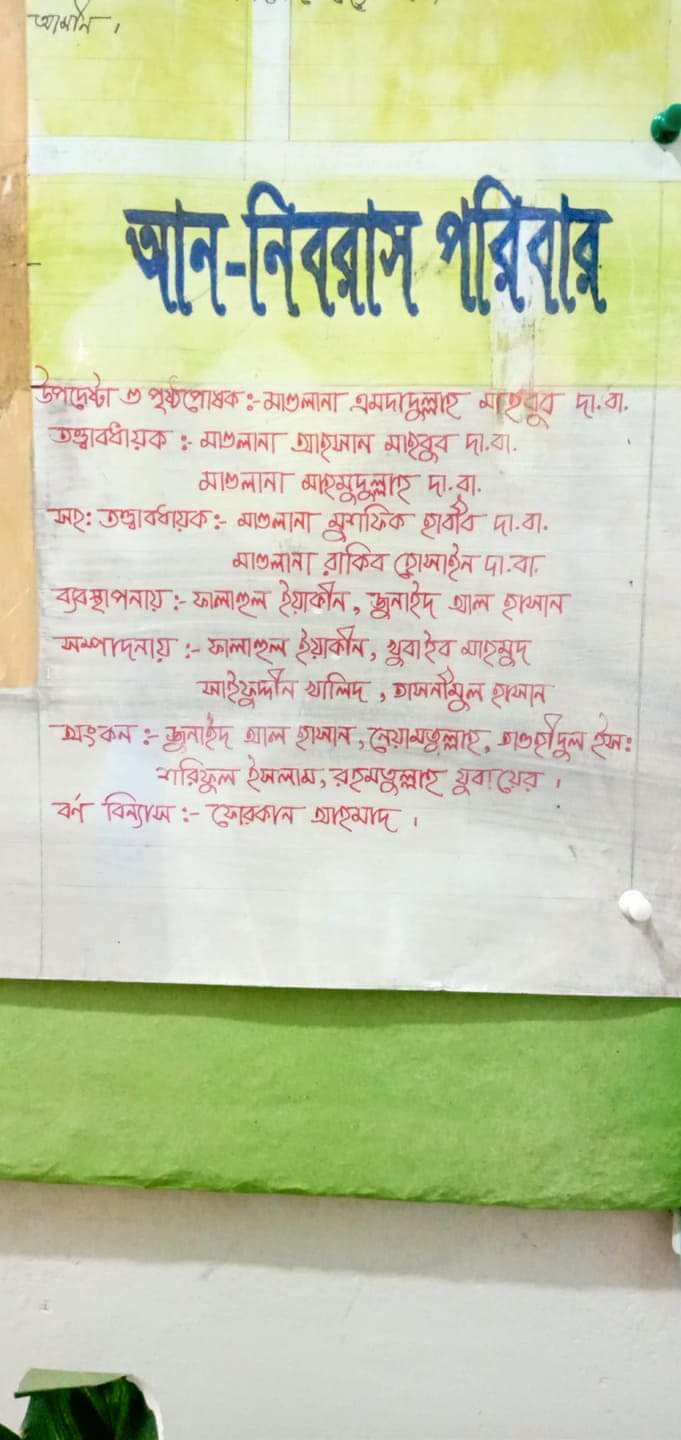 আমীন ।
আন-নিবরাস পরিবার
উপদেষ্টা ও পৃষ্ঠপোষক :- মাওলানা এমদাদুল্লাহ মাহবুব দা.বা.
তত্ত্বাবধায়ক :- মাওলানা আহসান মাহবুব দা.বা.
মাওলানা মাহমুদুল্লাহ দা.বা.
সহ: তত্ত্বাবধায়ক :- মাওলানা মুশফিক হাবীব দা.বা.
মাওলানা রাকিব হোসাইন দা.বা.
ব্যবস্থাপনায় :- ফালাহুল ইয়াকীন, জুনাইদ আল হাসান
সম্পাদনায় :- ফালাহুল ইয়াকীন, খুবাইব মাহমুদ
সাইফুদ্দীন খালিদ , তাসনীমুল হাসান
অংকন :- জুনাইদ আল হাসান, নেয়ামতুল্লাহ, তাওহীদুল ইস:
শরিফুল ইসলাম, রহমতুল্লাহ যুবায়ের ।
বর্ণ বিন্যাস :- ফোরকান আহমাদ ।